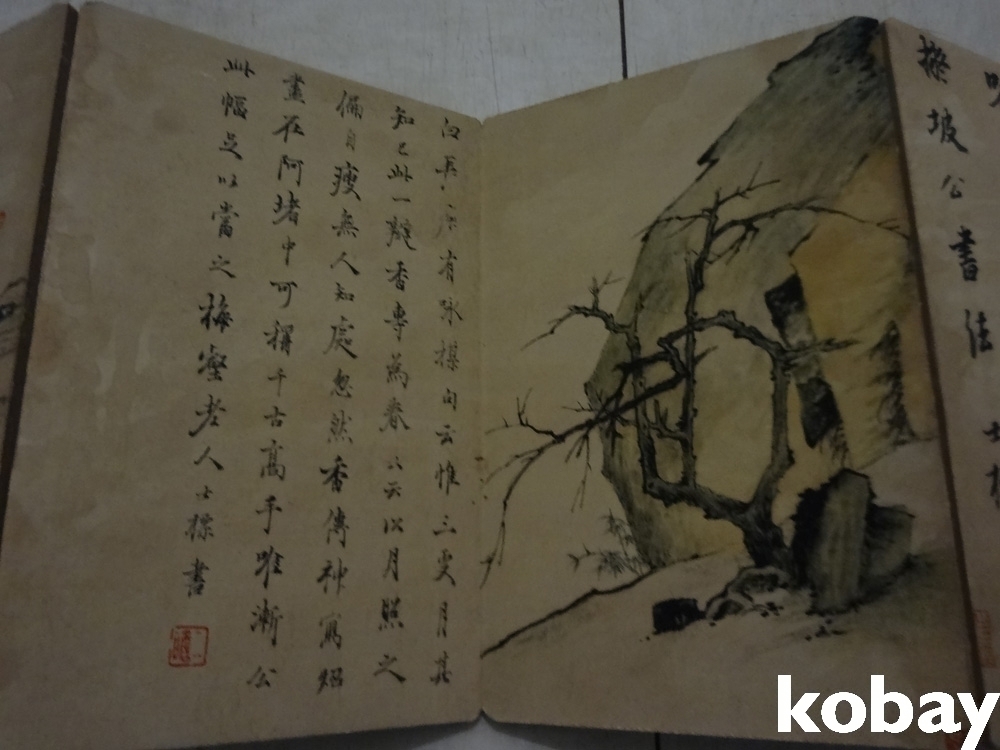 坡公書法
有咏楳句云惟三更月其
知己此一瓣香專為春〻云以月照之
倆自瘦無人知處忽然香傳神寫照
盡在阿堵中可稱千古高手唯漸公
此幅足以當之梅壑老人士標書
kobay